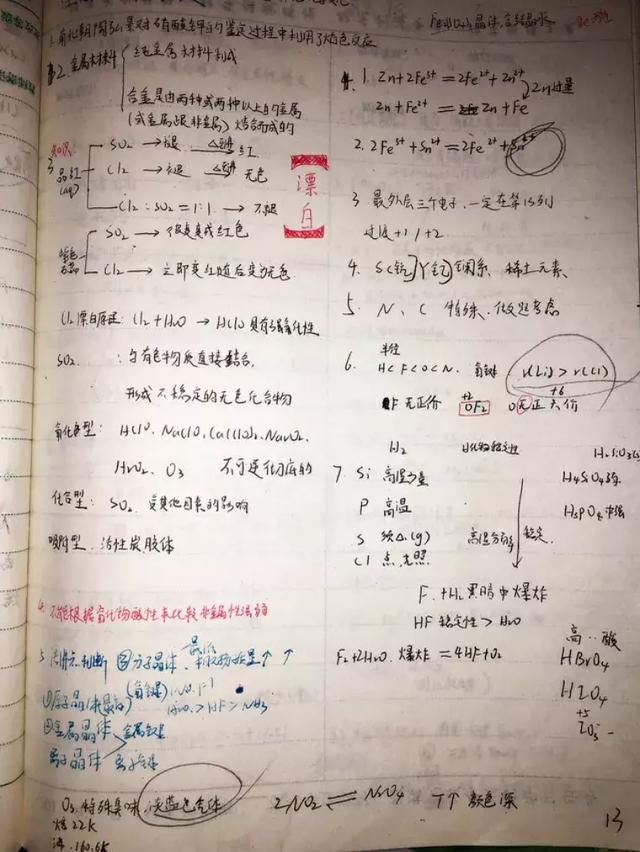 1. 南北朝陶弘景对硝酸钾的鉴定过程中利用了焰色反应
2. 金属材料
纯金属材料制成
合金是由两种或两种以上的金属
(或金属跟非金属)熔合而成的
知识
3 品红(aq)
SO₂ → 褪 △ 红
Cl₂ → 褪 △ 无色
Cl₂:SO₂=1:1 → 不褪
漂白
紫色石蕊
SO₂ → 变成红色
Cl₂ → 立即变红随后变为无色
Cl₂漂白原理: Cl₂+H₂O → HClO 具有强氧化性
SO₂ : 与有色物质直接结合,
形成不稳定的无色化合物
氧化型: HClO. NaClO. Ca(ClO)₂. Na₂O₂.
H₂O₂. O₃ 不可逆彻底的
化合型: SO₂
吸附型. 活性炭. 胶体
4. 不能根据氧化物酸性来比较非金属性
5. 判断 ③分子晶体
(氢键)
H₂O>HF>NH₃
①原子晶体
②金属晶体 金属键
离子晶体 离子键
O₃. 特殊臭味. 淡蓝色气体
2NO₂ ⇌ N₂O₄ T↑ 颜色深
沸. 160.6K
晶体.含结晶水
1. Zn+2Fe³⁺=2Fe²⁺+Zn²⁺
Zn过量
Zn+Fe²⁺=Zn+Fe
2. 2Fe³⁺+Sn²⁺=2Fe²⁺+Sn⁴⁺
3 最外层三个电子. 一定在第13列
过渡+1/+2
4. Sc[钪] Y[钇] 镧系. 稀土元素.
5. N、C 特殊. 做题考虑
半径
6. H<F<O<N. 氢键 r(Li)>r(Cl)
F无正价 +2 OF₂ O无正六价 +6
H₂ 氢化物稳定性
7. Si 高温少量 H₄SiO₄弱
P 高温 H₃PO₄中强
S 须△(g) 高温分解 稳定.
Cl 点.光照
F₂+H₂ 黑暗中爆炸
HF 稳定性>H₂O
F₂+2H₂O 爆炸=4HF+O₂
高··酸
HBrO₄
HIO₄
+5
IO₃⁻
13